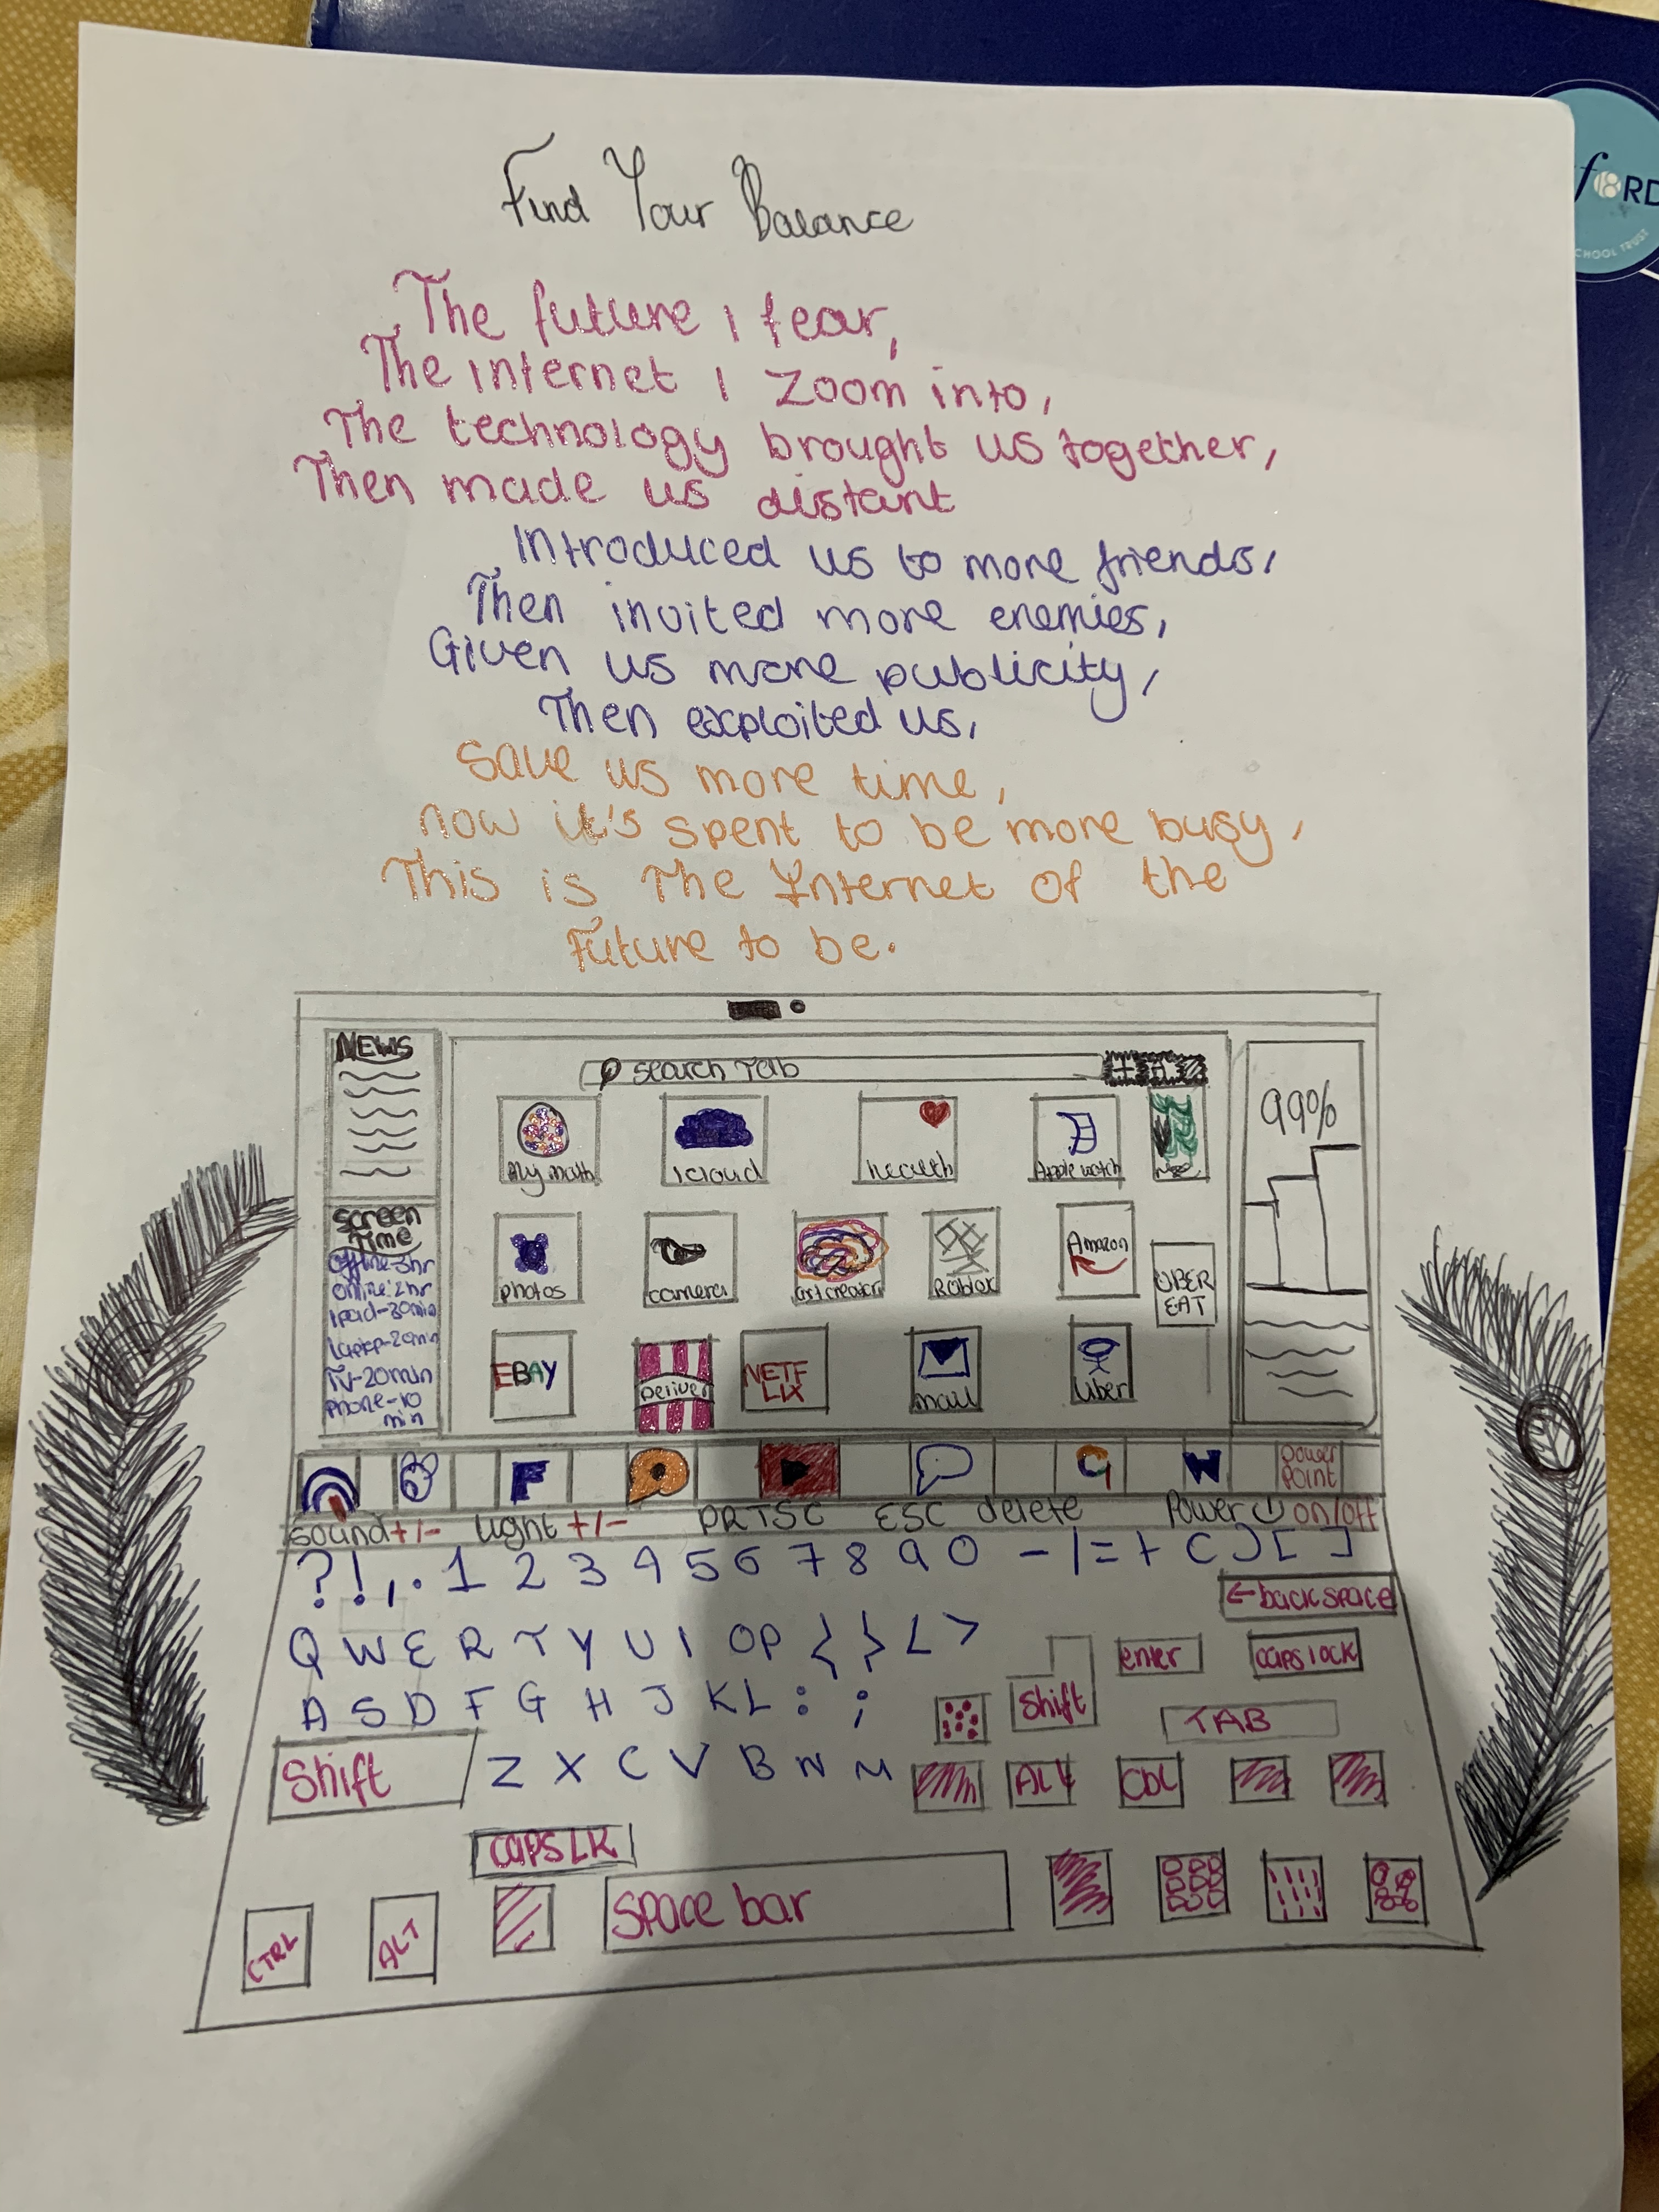 Find Your Balance
The future I fear,
The internet I Zoom into,
The technology brought us together,
Then made us distant
Introduced us to more friends,
Then invited more enemies,
Given us more publicity,
Then exploited us,
Save us more time,
now it's spent to be more busy,
This is The Internet Of the
Future to be.
FORD
CHOOL TRUST
NEWS
search Tab
99%
My math
icloud
health
Apple watch
Screen
Time
Offline-3hr
Online:2hr
ipad-30min
Laptop-20min
TV-20min
Phone-10
min
photos
camera
art creator
Roblox
Amazon
UBER
EAT
EBAY
Deliver
NETF
LIX
mail
Uber
F
G
W
power
Point
sound+/- Light +/- PRTSC ESC delete Power on/off
? ! , . 1 2 3 4 5 6 7 8 9 0 - / = + ( ) [ ]
← backspace
Q W E R T Y U I O P { } < >
enter
caps lock
A S D F G H J K L : ;
Shift
TAB
Shift
Z X C V B N M
ALT
CAPS LK
CTRL
ALT
Space bar